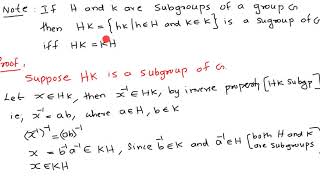 Note: If H and K are Subgroups of a group G
then HK = {hk | h∈H and k∈K} is a Sugroup of G
iff HK = KH
Proof,
Suppose HK is a subgroup of G.
Let x∈HK, then x⁻¹∈HK, by inverse property [HK Subgp]
ie, x⁻¹ = ab, where a∈H, b∈K
(x⁻¹)⁻¹ = (ab)⁻¹
x = b⁻¹a⁻¹ ∈ KH, Since b⁻¹∈K and a⁻¹∈H [both H and K are Subgroups]
x∈KH